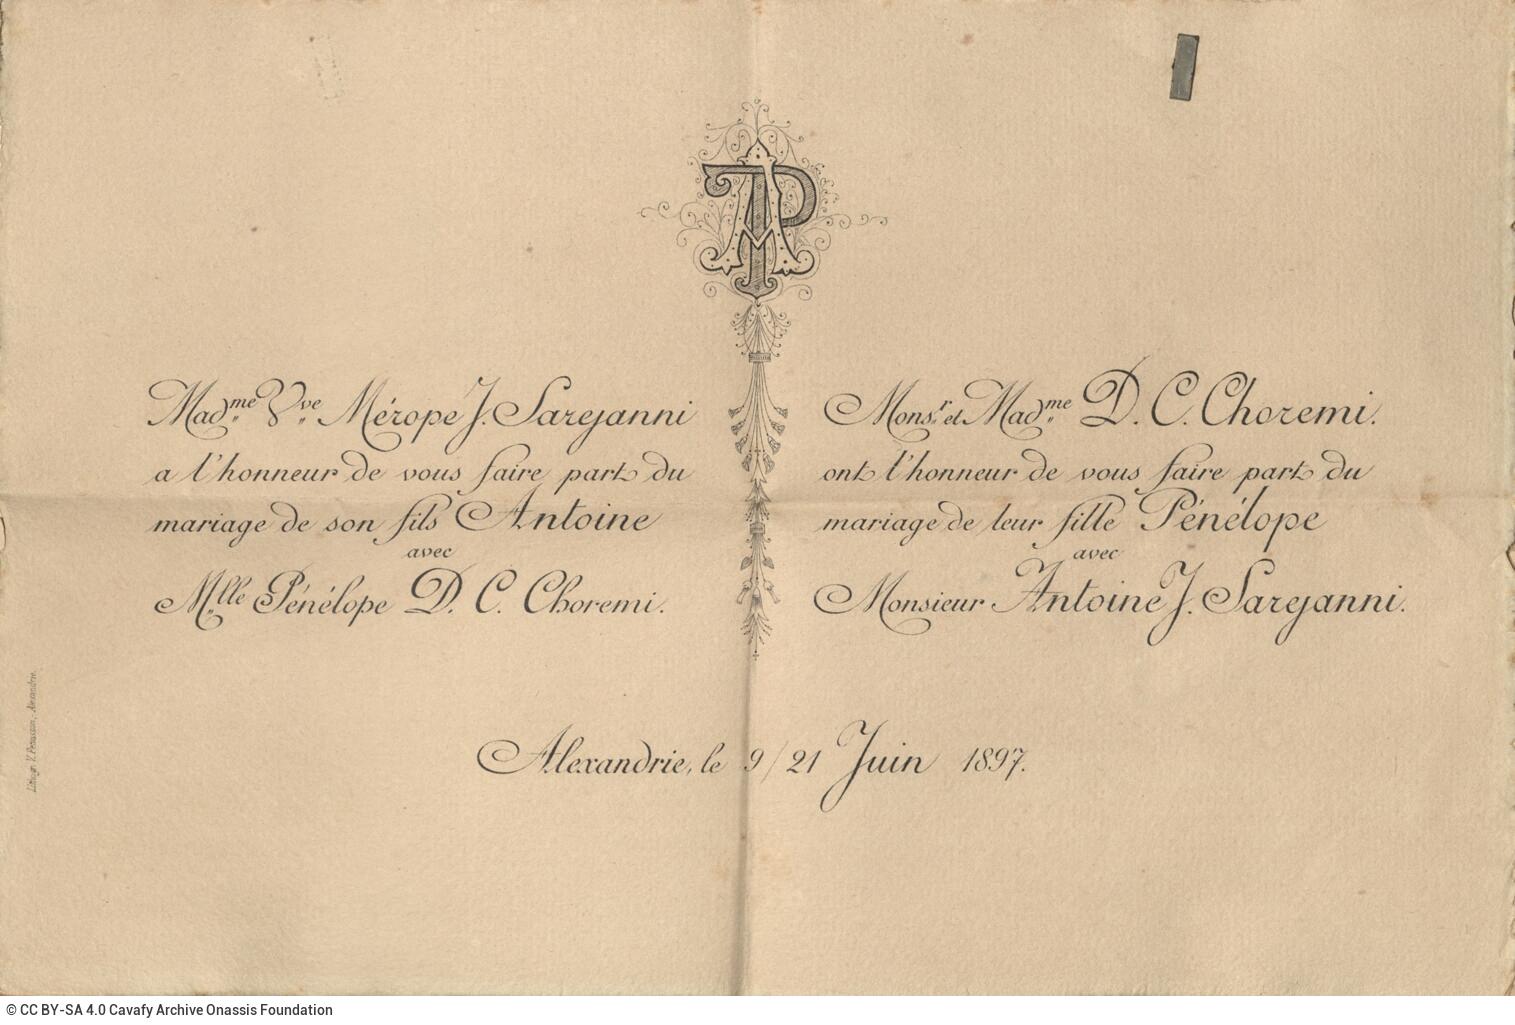 AP
Mad.me Vve Mérope J. Sarejanni
a l'honneur de vous faire part du
mariage de son fils Antoine
avec
M.lle Pénélope D. C. Choremi.
Mons.r et Mad.me D. C. Choremi.
ont l'honneur de vous faire part du
mariage de leur fille Pénélope
avec
Monsieur Antoine J. Sarejanni.
Alexandrie, le 9/21 Juin 1897.
Lithogr. V. Penasson, Alexandrie.
© CC BY-SA 4.0 Cavafy Archive Onassis Foundation